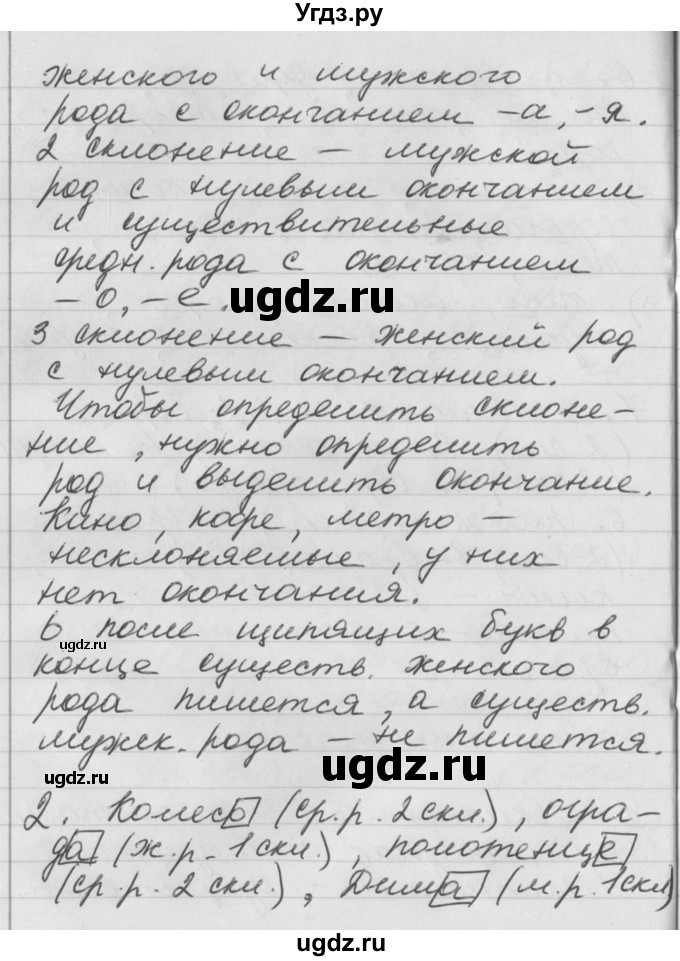 Угдз.ру
женского и мужского
рода с окончанием -а, -я.
2 склонение - мужской
род с нулевым окончанием
и существительные
средн. рода с окончанием
- о, - е.
ugdz.ru
3 склонение - женский род
с нулевым окончанием.
Чтобы определить склоне-
ние, нужно определить
род и выделить окончание.
Кино, кофе, метро -
несклоняемые, у них
нет окончания.
ь после шипящих букв в
ugdz.ru
конце существ. женского
рода пишется, а существ.
мужск. рода - не пишется.
ugdz.ru
ugdz.ru
2. Колесо (ср.р. 2 скл.), огра-
да (ж.р. 1 скл.), полотенце
(ср.р. 2 скл.), Дима (м.р. 1 скл)
ugdz.ru